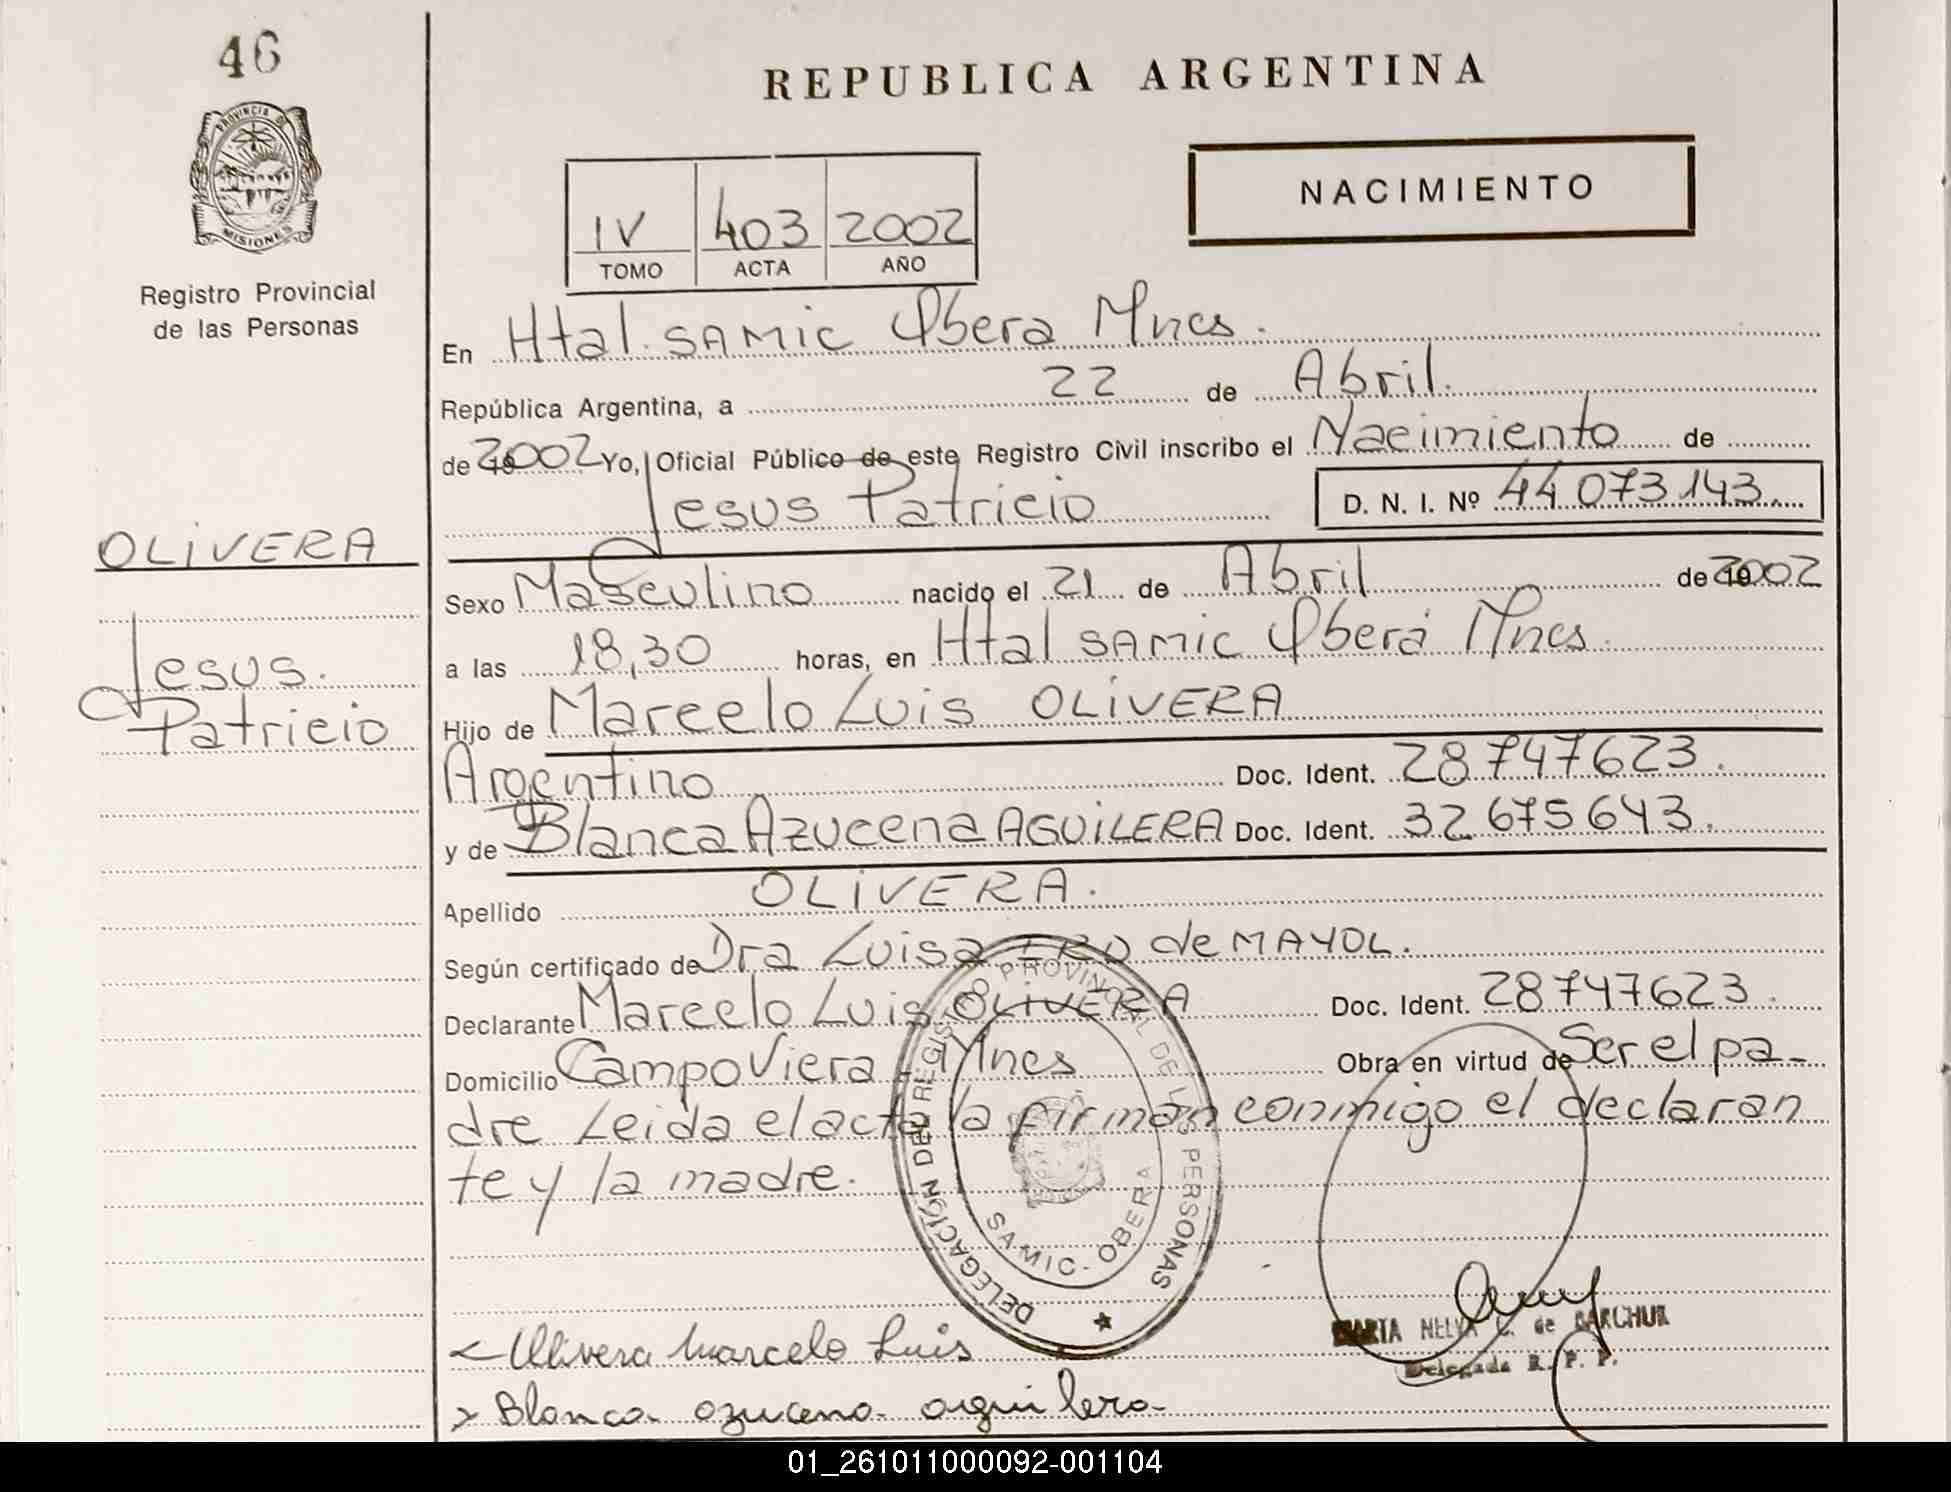 46
PROVINCIA DE
MISIONES
Registro Provincial
de las Personas
OLIVERA
Jesus.
Patricio
REPUBLICA ARGENTINA
NACIMIENTO
IV 403 2002
TOMO ACTA AÑO
En Htal. SAMIC Obera Mnes.
República Argentina, a 22 de Abril.
de 2002 Yo, Oficial Público de este Registro Civil inscribo el Nacimiento de
Jesus Patricio D. N. I. Nº 44.073.143
Sexo Masculino nacido el 21 de Abril de 2002
a las 18,30 horas, en Htal SAMIC Oberá Mnes.
Hijo de Marcelo Luis OLIVERA
Argentino Doc. Ident. 28747623.
y de Blanca Azucena AGUILERA Doc. Ident. 32.675643.
Apellido OLIVERA.
Según certificado de Dra Luisa de MAYOL.
Declarante Marcelo Luis OLIVERA Doc. Ident. 28747623.
Domicilio Campo Viera Mnes Obra en virtud de Ser el pa-
dre Leida el acta la firman conmigo el declaran
te y la madre.
DELEGACIÓN DEL REGISTRO PROVINCIAL DE LAS PERSONAS
SAMIC - OBERA
Olivera Marcelo Luis
Blanca azucena aguilera
MARTA NELVA C. de BARCHUK
Delegada R. P. P.
01_261011000092-001104